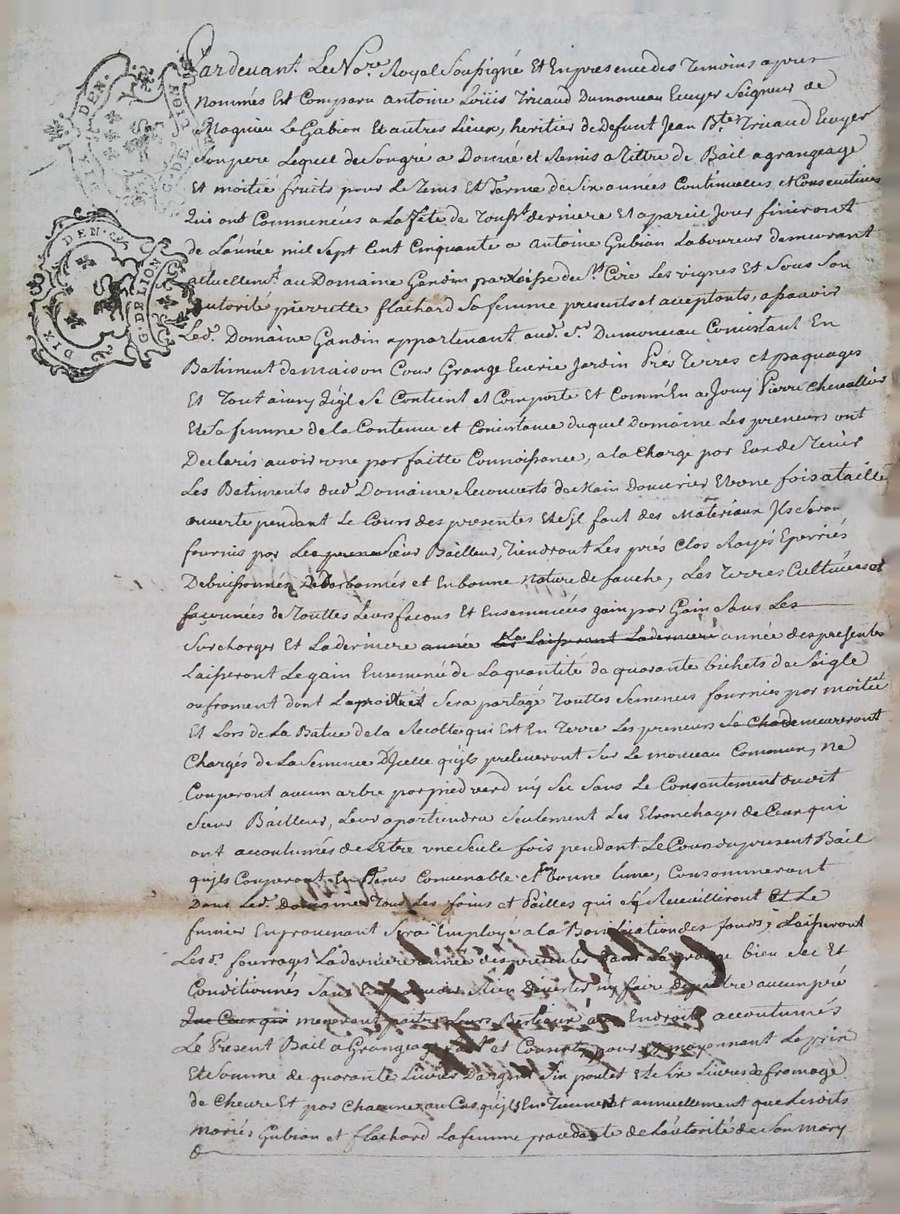 DIX DEN.
G. DE LION
DIX DEN.
G. DE LION
Pardevant. Le No.re Royal Soussigné Et En presence des Temoins apres
nommés Est Comparu antoine Loüis Truaud Dumonceau Ecuyer Seigneur de
Le Gabion Et autres Lieux, heritier de Defunt Jean B.te Truaud Ecuyer
Son pere Lequel de Son gré a Donné et Remis a Tittre de Bail a grangeage
Et moitié fruits pour Le Tems Et Terme de Six années Continuelles et Consecutives
Qui ont Commencées a La fete de Touss.t derniere Et a pareil Jour finiront
de L'année mil Sept Cent Cinquante a antoine Gubian Laboureur demeurant
actuellem.t au Domaine Gandin parroisse de S.t Cire Les vignes Et Sous Son
autorité pierrette flachard Sa femme presents et acceptants, a sçavoir
Led. Domaine Gandin appartenant aud. S.r Dumonceau Consistant En
Batiment de maison Cour Grange Ecurie Jardin Pres Terres et paquages
Et Tout ainsy qu'il Se Contient et Comporte Et Comm'En a Jouy Pierre Chevallier
Et Sa femme de la Contenue et Consistance duquel Domaine Les preneurs ont
Declarés avoir une parfaitte Connoissance, a la Charge par Eux de Tenir
Les Batiments dud. Domaine Recouverts de Main D'ouvrier Et une fois a taille
ouverte pendant Le Cours des presentes Et S'jl faut des Materiaux Jls Seront
fournis par Le Sieur Bailleur, Tiendront Les prés Clos Rayés Eperriés
Debuissonnés Dedarbonnés et En bonne Nature de fauche, Les Terres Cultivées et
façonnées de Touttes Leurs façons et Ensemencées gain par Gain Sans Les
Surcharger Et La derniere année Laisseront La derniere année des presentes
Laisseront Le gain Ensemencé de La quantité de quarante bichets de Seigle
ou froment dont La Sera partagé Touttes Semences fournies par moitiée
Et Lors de La Batue de la Recolte qui Est En Terre Les preneurs Se demeureront
Chargés de La Semence D'Jcelle qu'jls preleveront Sur Le monceau Commun, ne
Couperont aucun arbre par pied verd ny Sec Sans Le Consentement dudit
Sieur Bailleur, Leur apartiendra Seulement Les Etronchages de Ceux qui
ont accoutumés de L'Etre une Seule fois pendant Le Cours du present Bail
qu'jls Couperont En Tems Convenable et En bonne Lune, Consommeront
Dans Led. Domaine Tous Les foins et Pailles qui S'y Recueilliront Et Le
fumier En provenant Sera Employé a la Bonification des fonds; Laisseront
Les d. fourrages La derniere année des presentes dans La grange bien Sec Et
Conditionnés Sans En pouvoir Rien Divertir ny faire Depaitre aucun pré
meneront paitre Leurs Bestiaux aux Endroits accoutumés
Le Present Bail a Grangeage fait et Consenty pour et moyennant Le prix
Et Somme de quarante Livres D'argent Six poulet Et Six Livres de fromage
de Chevre Et par Chacune au Cas qu'jls En Tiennent annuellement que Lesdits
mariés Gubian et flachard La femme procedante de L'autorité de Son mary